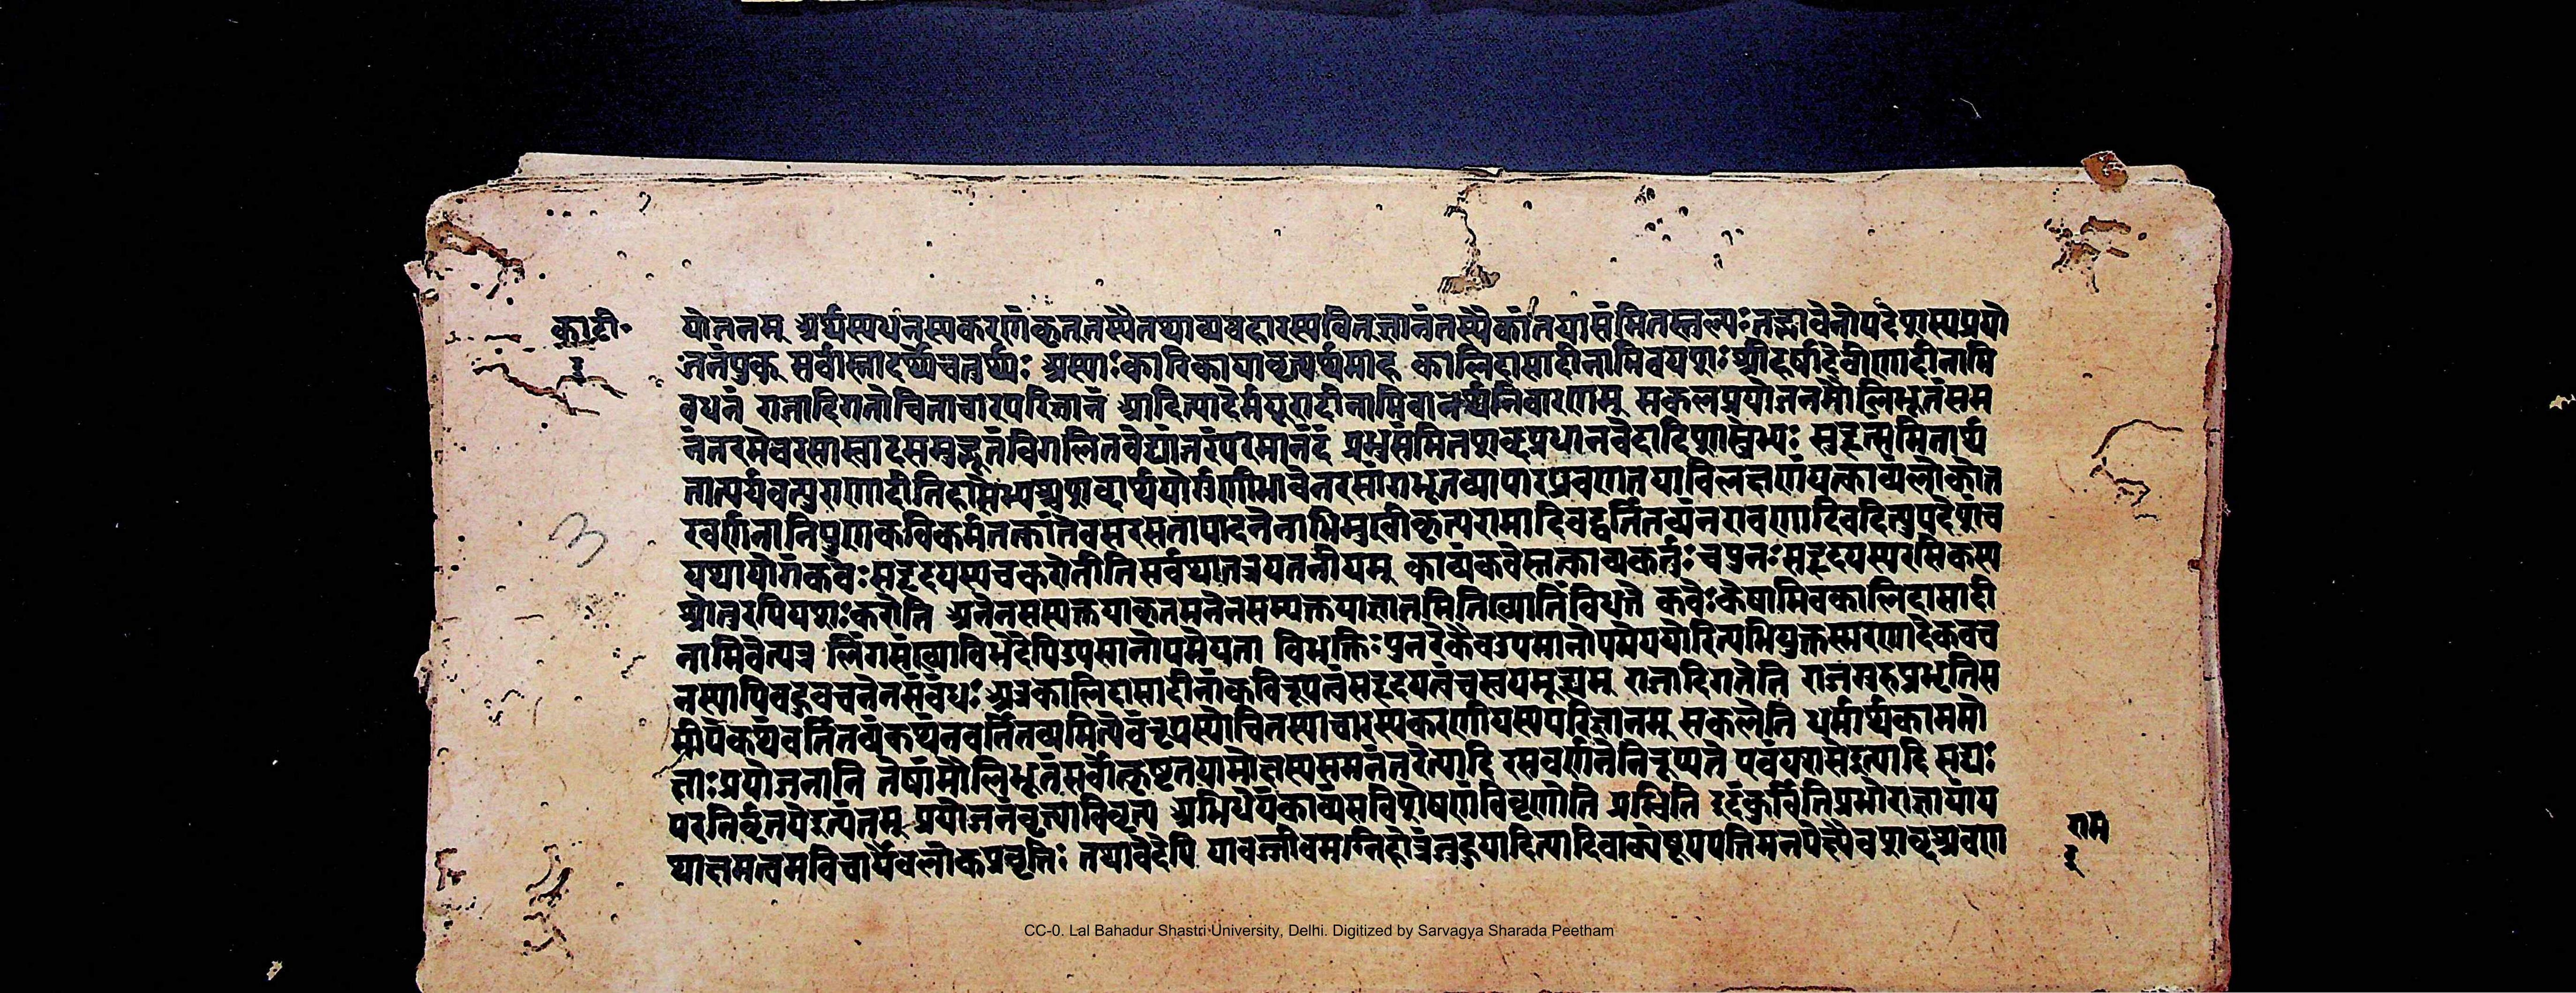 का॰टी॰
३
योजनम् अर्थस्यधनस्यकरणंकृत्तस्यैतथाव्यवहारस्यवित्ज्ञानंतस्यैकांतयासंमितस्तुल्यःतद्भावेनोपदेशस्यप्रयो
जनंयुक् सर्वास्तादर्थ्येचतुर्थ्यः अस्याःकारिकायावृत्यर्थमाह कालिदासादीनामिवयशःश्रीहर्षादेर्बाणादीनामि
वधनं राजादिगतोचिताचारपरिज्ञानं आदित्यादेर्मयूरादीनामिवानर्थनिवारणम् सकलप्रयोजनमौलिभूतंसम
नंतरमेवरसास्वादसमुद्भूतंविगलितवेद्यांतरंपरमानंदं प्रभुसंमितशब्दप्रधानवेदादिशास्त्रेभ्यः सुहृत्समितार्थ
तात्पर्यवत्पुराणादीतिहासेभ्यश्चशब्दार्थयोर्गुणीभावेनरसांगभूतव्यापारप्रवणतयाविलक्षणंयत्काव्यंलोकोत
रवर्णनानिपुणकविकर्मतत्कांतेवसरसतापादनेनाभिमुखीकृत्यरामादिवद्वर्तितव्यंनरावणादिवदित्युपदेशंच
यथायोगंकवेःसहृदयस्यचकरोतीतिसर्वथातत्रयतनीयम् काव्यंकवेस्तत्काव्यकर्तुःचपुनःसहृदयस्यरसिकस्य
श्रोतुरपियशःकरोति अनेनसम्यक्तयाकृतमनेनसम्यक्तयाज्ञातमितिख्यातिंविधत्ते कवेःकेषामिवकालिदासादी
नामिवेत्यत्र लिंगसंख्याविभेदेपिउपमानोपमेयता विभक्तिःपुनरेकैवउपमानोपमेययोरित्यभियुक्तस्मरणादेकवच
नस्यापिबहुवचनेनसंबंधः अत्रकालिदासादीनांकवित्रूपत्वंसहृदयत्वंचस्वयमूह्यम् राजादिगतेति राजगुरुप्रभृतिस
मीपेकथंवर्तितव्यंकथंनवर्तितव्यमित्येवंरूपस्योचितस्याचारस्यकरणीयस्यपरिज्ञानम् सकलेति धर्मार्थकाममो
क्षाःप्रयोजनानि तेषांमौलिभूतंसर्वोत्कृष्टतयामोक्षस्यसमनंतरेत्यादि रसवर्णनेनिरूप्यते एवंयशसेइत्यादि सद्यः
परनिर्वृतयेइत्यंतम् प्रयोजनंवृत्याविवृत्य अभिधेयंकाव्यंसविशेषणंविवृणोति प्रभ्विति इदंकुर्वितिप्रभोराज्ञायांय
थाज्ञमत्वमविचार्यैवलोकप्रवृत्तिः तथावेदेपि यावज्जीवमग्निहोत्रंजुहुयादित्यादिवाक्येषूपपत्तिमनपेक्ष्यैवशब्दश्रवण
राम
३
3
CC-0. Lal Bahadur Shastri University, Delhi. Digitized by Sarvagya Sharada Peetham